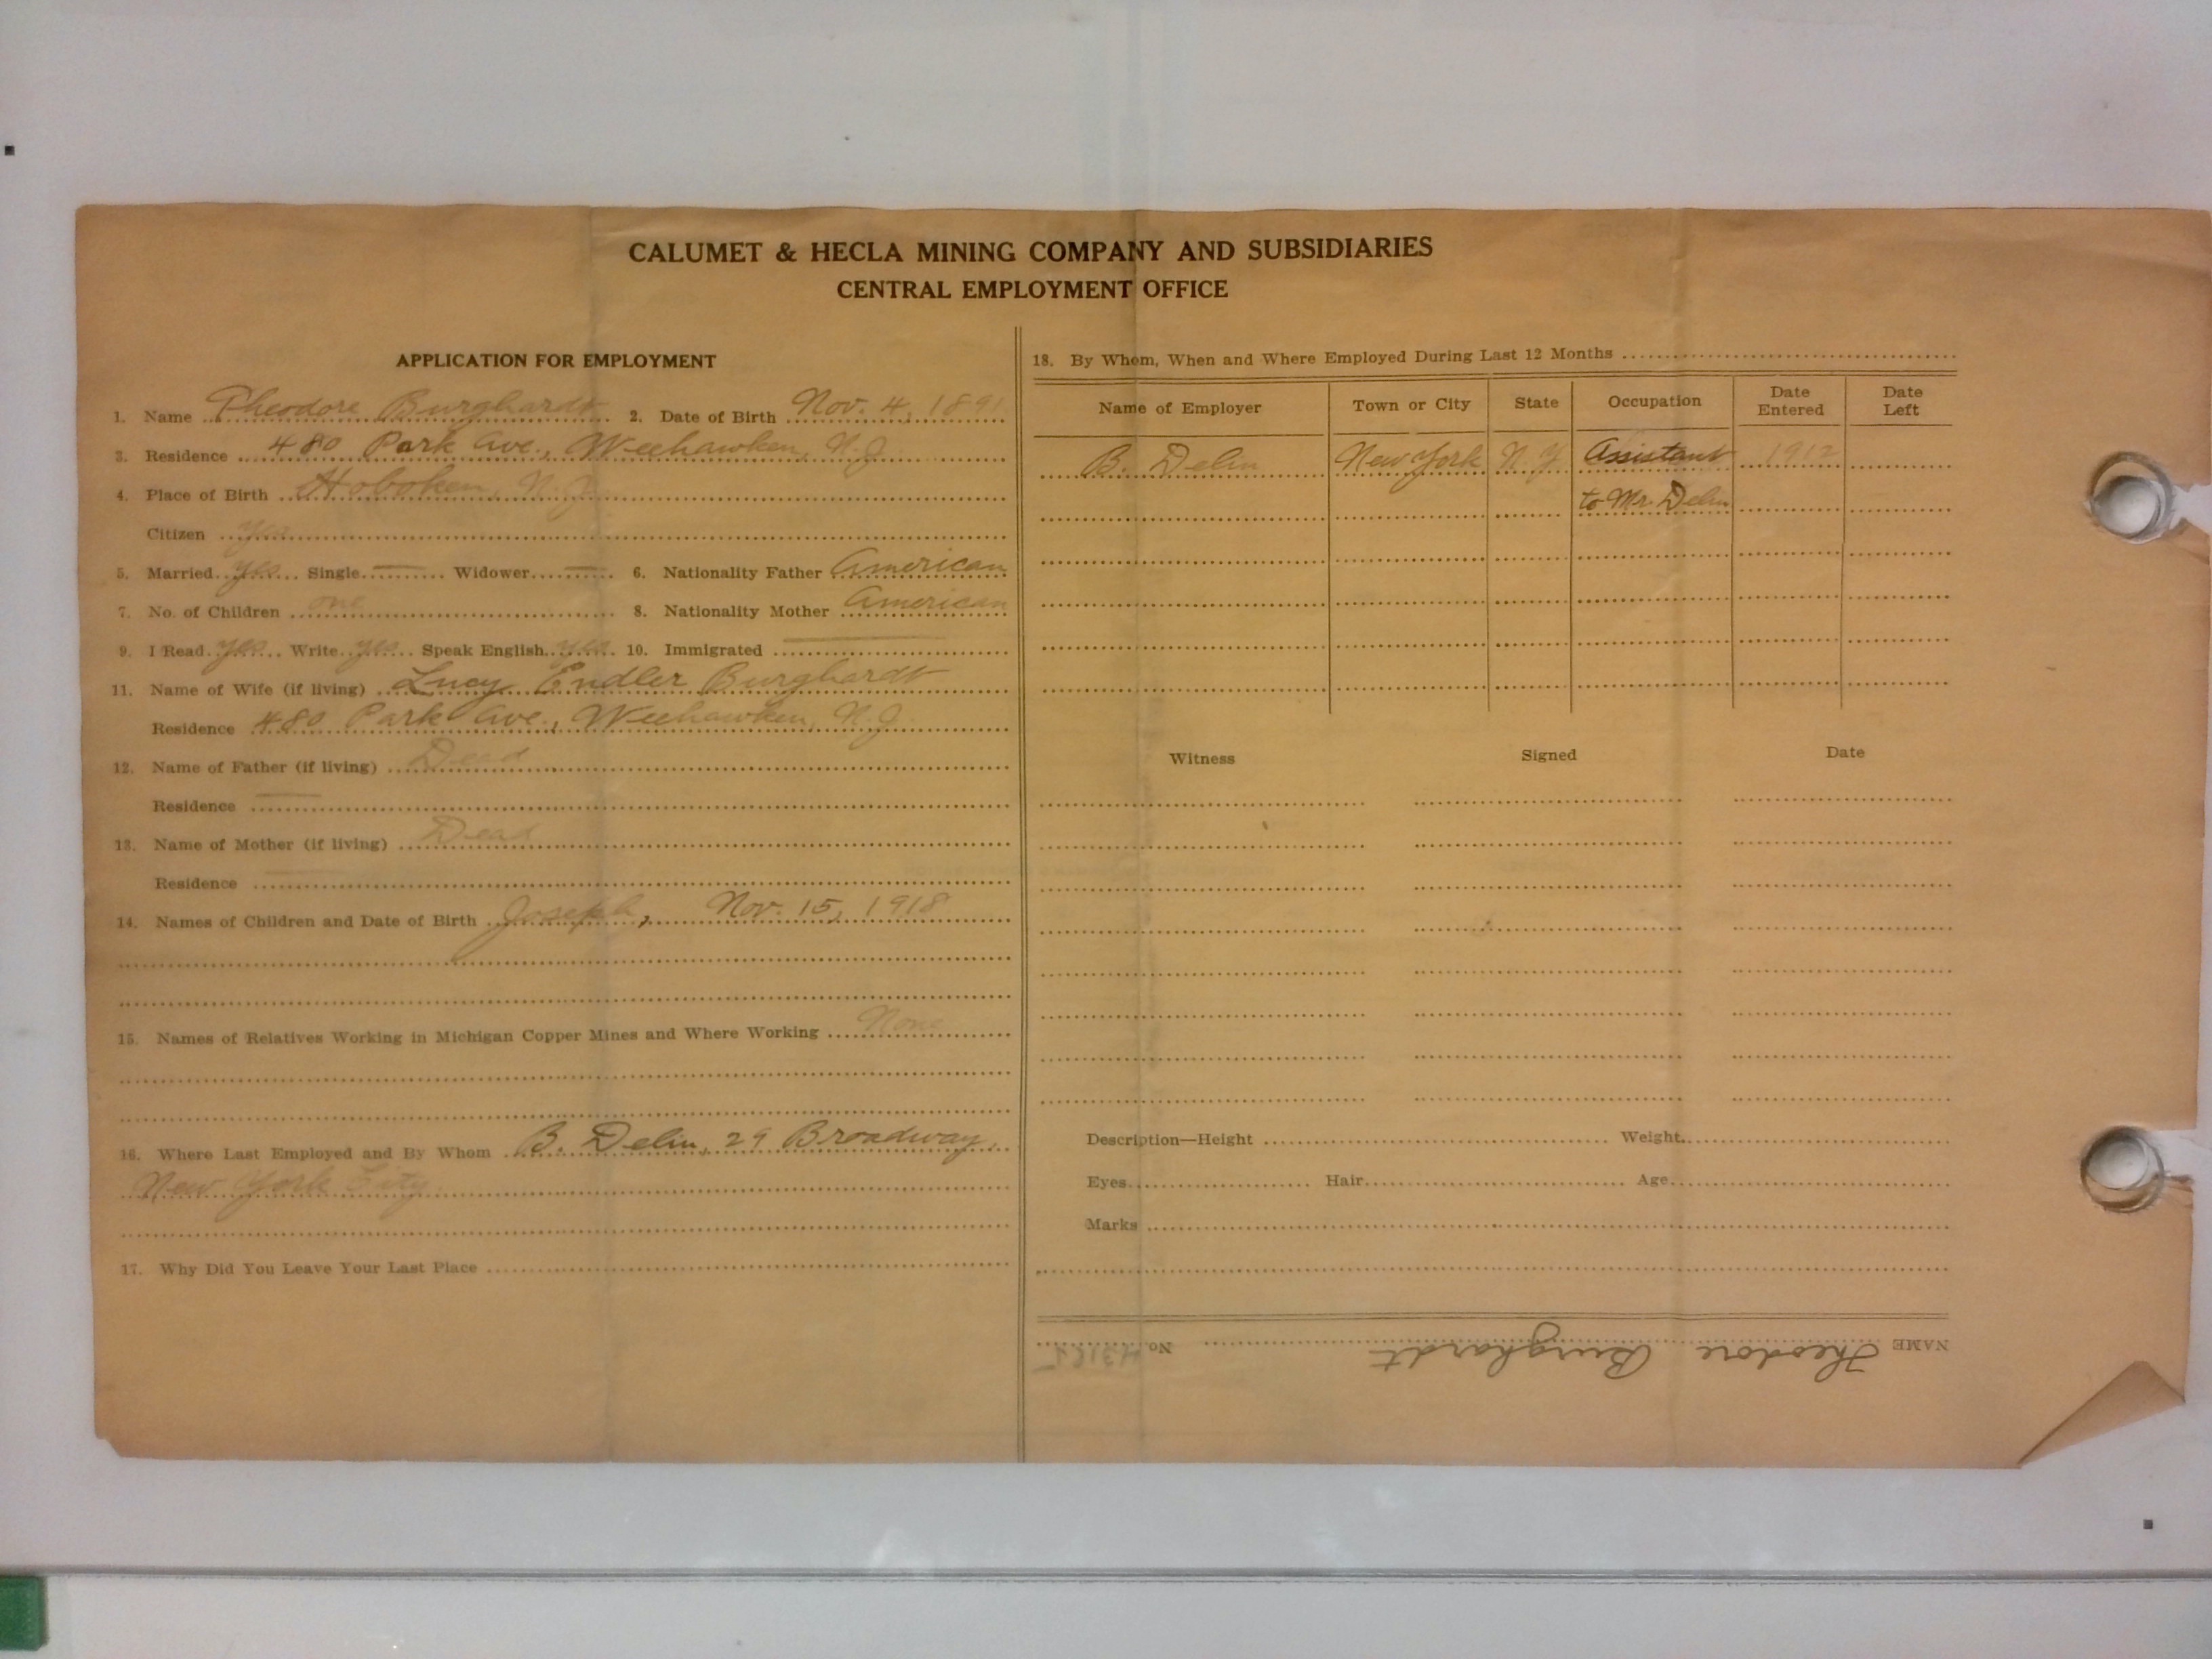 CALUMET & HECLA MINING COMPANY AND SUBSIDIARIES
CENTRAL EMPLOYMENT OFFICE
APPLICATION FOR EMPLOYMENT
1. Name Theodore Burghardt 2. Date of Birth Nov. 4, 1891
3. Residence 480 Park Ave., Weehawken, N.J.
4. Place of Birth Hoboken, N.J.
Citizen yes
5. Married yes Single — Widower — 6. Nationality Father American
7. No. of Children one 8. Nationality Mother American
9. I Read yes Write yes Speak English yes 10. Immigrated —
11. Name of Wife (if living) Lucy Endler Burghardt
Residence 480 Park Ave., Weehawken, N.J.
12. Name of Father (if living) Dead
Residence —
13. Name of Mother (if living) Dead
Residence —
14. Names of Children and Date of Birth Joseph, Nov. 15, 1918
15. Names of Relatives Working in Michigan Copper Mines and Where Working None
16. Where Last Employed and By Whom B. Delin, 29 Broadway,
New York City
17. Why Did You Leave Your Last Place
18. By Whom, When and Where Employed During Last 12 Months
Name of Employer Town or City State Occupation Date Entered Date Left
B. Delin New York N.Y. Assistant 1912
to Mr. Delin
Witness Signed Date
Description—Height Weight
Eyes Hair Age
Marks
NAME Theodore Burghardt No.